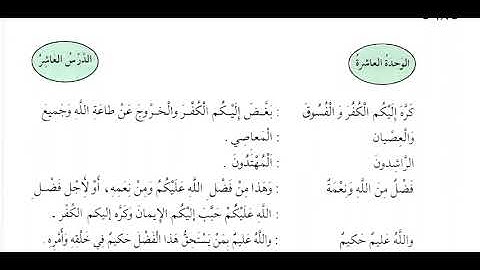 الوحدة العاشرة الدَّرْسُ العَاشِرُ
كَرَّهَ إِلَيْكُم الْكُفْرَ وَ الْفُسُوقَ : بَغَّضَ إِلَيْكُم الْكُفْرَ والْخرُوجَ عَنْ طاعَةِ اللَّه وَجَميعَ
وَالْعِصْيان الْمَعاصِي .
الرَّاشدونَ : الْمُهْتَدُونَ .
فَضْلٌ مِنَ اللَّهِ وَنَعْمَةٌ : وَهَذا مِنْ فَضْلِ اللَّهِ عَلَيْكُمْ وَمِنْ نِعَمِهِ، أَوْ لِأَجْلِ فَضْلِ
اللَّهِ عَلَيْكُمْ حَبَّبَ إِلَيْكُمُ الإِيمانَ وَكَرَّهَ إليكم الكُفْرَ .
واللَّهُ عَليمٌ حَكيمٌ : واللَّهُ عَليمٌ بِمَنْ يَسْتَحِقُّ هَذا الْفَضْلَ حَكيمٌ في خَلْقِهِ وَأَمْرِهِ .